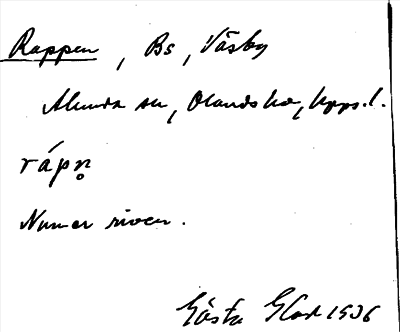 Rappen, Bs, Väsby
Alunda sn, Olands hd, Upps. l.
rápn̥
Numer riven.
Gösta Glad 1936